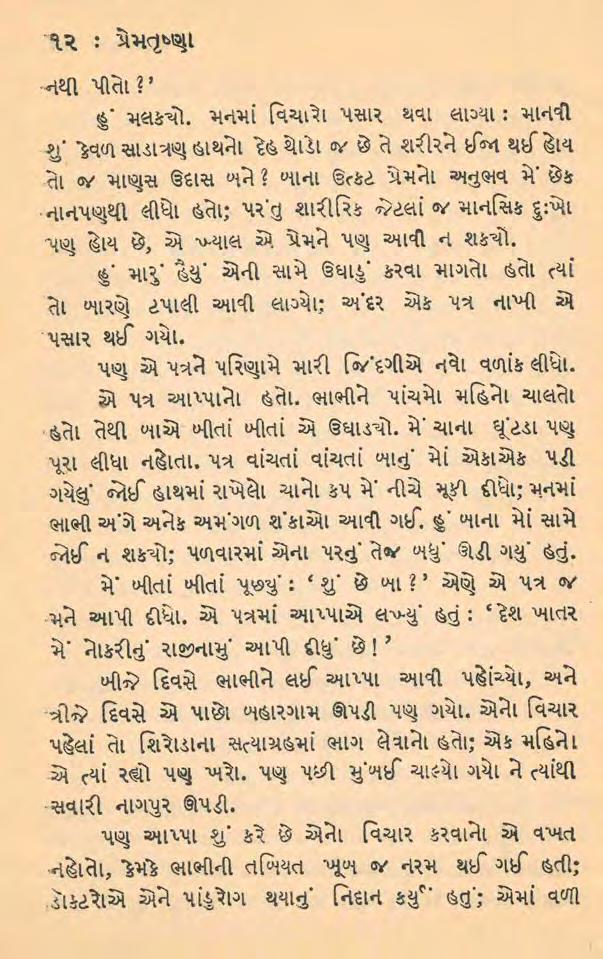 ૧૨ : પ્રેમતૃષ્ણા
નથી પીતો ?’
હું મલકયો. મનમાં વિચારો પસાર થવા લાગ્યા : માનવી
શું કેવળ સાડાત્રણ હાથનો દેહ થોડો જ છે તે શરીરને ઈજા થઈ હોય
તો જ માણસ ઉદાસ બને ? બાના ઉત્કટ પ્રેમનો અનુભવ મેં છેક
નાનપણથી લીધો હતો; પરંતુ શારીરિક જેટલાં જ માનસિક દુઃખો
પણ હોય છે, એ ખ્યાલ એ પ્રેમને પણ આવી ન શકયો.
હું મારું હૈયું એની સામે ઉઘાડું કરવા માગતો હતો ત્યાં
તો બારણે ટપાલી આવી લાગ્યો; અંદર એક પત્ર નાખી એ
પસાર થઈ ગયો.
પણ એ પત્રને પરિણામે મારી જિંદગીએ નવો વળાંક લીધો.
એ પત્ર આપ્પાનો હતો. ભાભીને પાંચમો મહિનો ચાલતો
હતો તેથી બાએ બીતાં બીતાં એ ઉઘાડયો. મેં ચાના ઘૂંટડા પણ
પૂરા લીધા નહોતા. પત્ર વાંચતાં વાંચતાં બાનું મોં એકાએક પડી
ગયેલું જોઈ હાથમાં રાખેલો ચાનો કપ મેં નીચે મૂકી દીધો; મનમાં
ભાભી અંગે અનેક અમંગળ શંકાઓ આવી ગઈ. હું બાના મોં સામે
જોઈ ન શકયો; પળવારમાં એના પરનું તેજ બધું ઊડી ગયું હતું.
મેં બીતાં બીતાં પૂછયું : ‘ શું છે બા ?’ એણે એ પત્ર જ
મને આપી દીધો. એ પત્રમાં આપ્પાએ લખ્યું હતું : ‘દેશ ખાતર
મેં નોકરીનું રાજીનામું આપી દીધું છે ! ’
બીજે દિવસે ભાભીને લઈ આપ્પા આવી પહોંચ્યો, અને
ત્રીજે દિવસે એ પાછો બહારગામ ઊપડી પણ ગયો. એનો વિચાર
પહેલાં તો શિરોડાના સત્યાગ્રહમાં ભાગ લેવાનો હતો; એક મહિનો
એ ત્યાં રહ્યો પણ ખરો. પણ પછી મુંબઈ ચાલ્યો ગયો ને ત્યાંથી
સવારી નાગપુર ઊપડી.
પણ આપ્પા શું કરે છે એનો વિચાર કરવાનો એ વખત
નહોતો, કેમકે ભાભીની તબિયત ખૂબ જ નરમ થઈ ગઈ હતી;
ડૉક્ટરોએ એને પાંડુરોગ થયાનું નિદાન કર્યું હતું; એમાં વળી